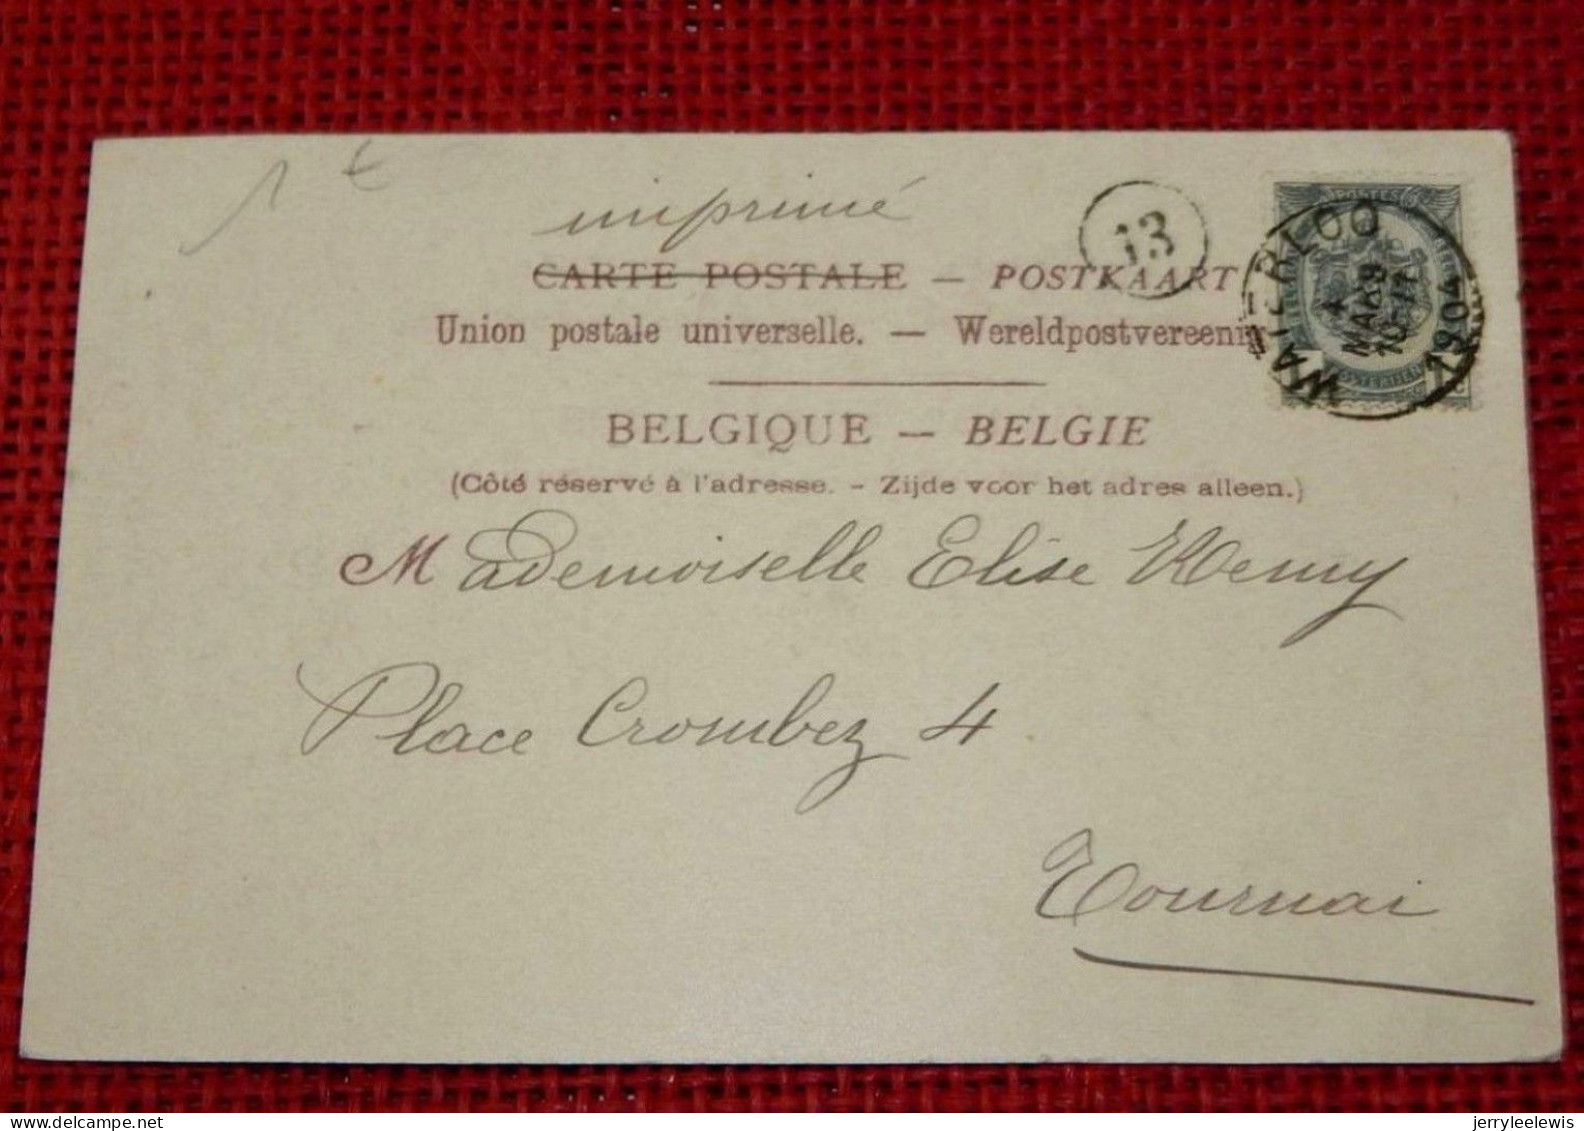 1 €
imprimé
13
CARTE POSTALE — POSTKAART
Union postale universelle. — Wereldpostvereeni
BELGIQUE — BELGIE
(Côté réservé à l'adresse. - Zijde voor het adres alleen.)
POSTES
WATERLOO
4
MARS
10-11
1904
Mademoiselle Elise Remy
Place Crombez 4
Tournai
jerryleelewis